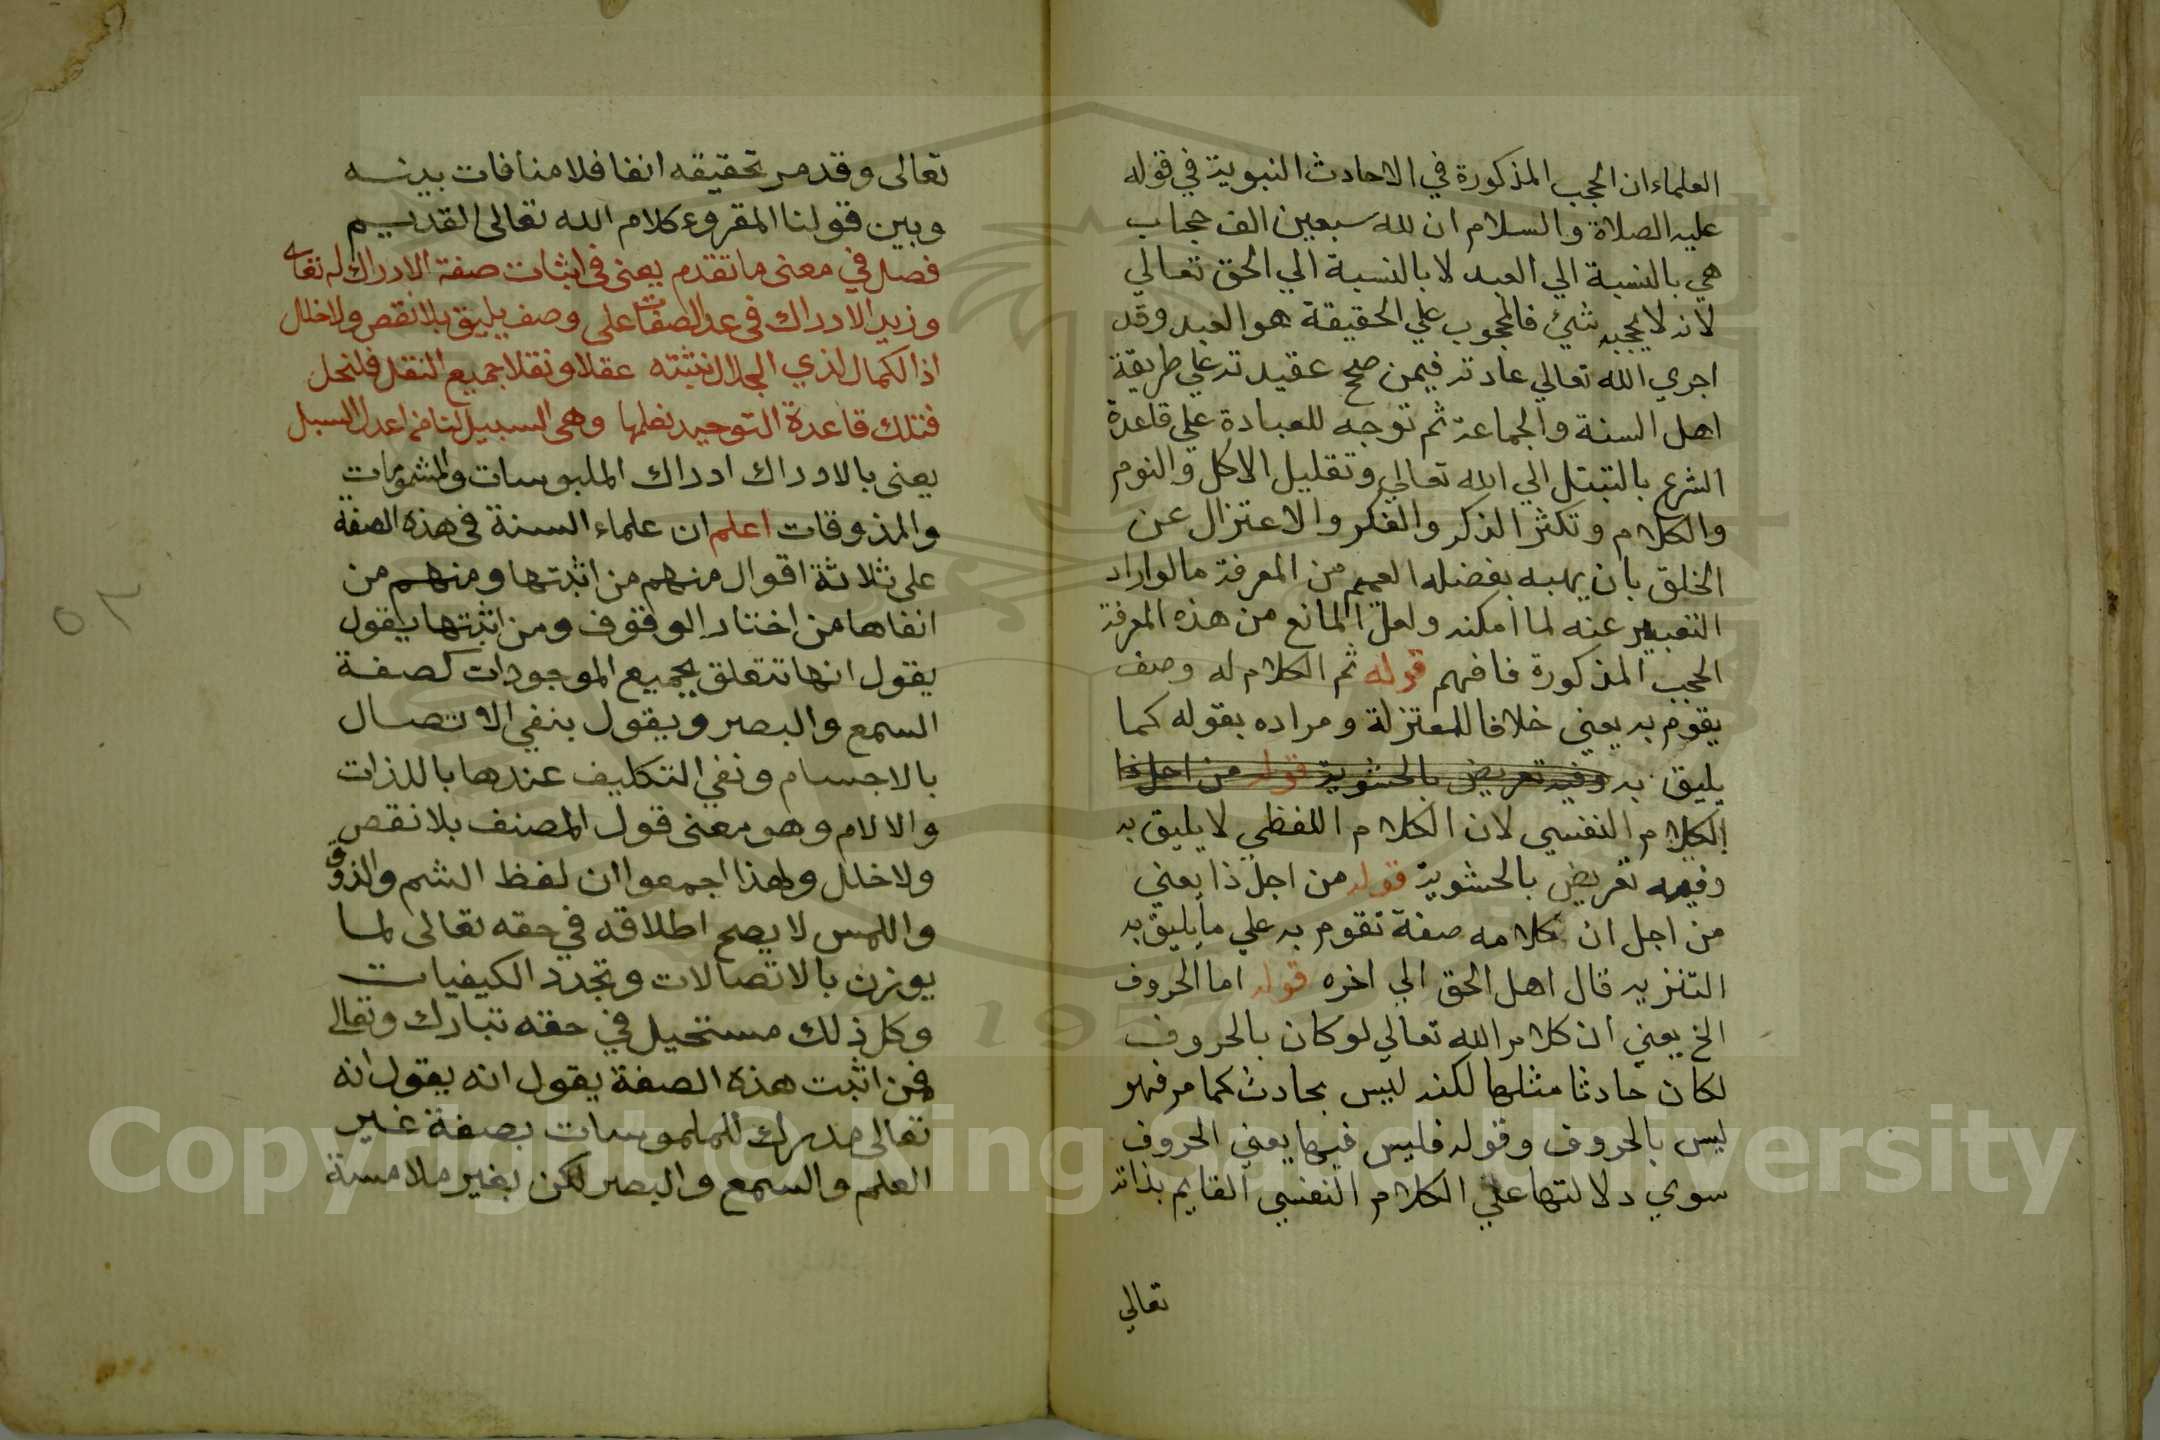 العلماء ان الحجب المذكورة في الاحادث النبوية في قوله
عليه الصلاة والسلام ان لله سبعين الف حجاب
هي بالنسبة الي العبد لا بالنسبة الي الحق تعالي
لانه لا يحجبه شئ فالمحجوب علي الحقيقة هو العبد وقد
اجري الله تعالي عادته فيمن صحح عقيدته علي طريقة
اهل السنة والجماعة ثم توجه للعبادة علي قاعدة
الشرع بالتبتل الي الله تعالي وتقليل الاكل والنوم
والكلام وتكثر الذكر والفكر والاعتزال عن
الخلق بان يهبه بفضله العميم من المعرفة ما لو اراد
التعبير عنه لما امكنه ولعل المانع من هذه المعرفة
الحجب المذكورة فافهم قوله ثم الكلام له وصف
يقوم به يعني خلافا للمعتزلة ومراده بقوله كما
يليق به وفيه تعريض بالحشوية قوله من اجل ذا
الكلام النفسي لان الكلام اللفظي لا يليق به
وفيه تعريض بالحشوية قوله من اجل ذا يعني
من اجل ان كلامه صفة تقوم به علي ما يليق به
التنزيه قال اهل الحق الي اخره قوله اما الحروف
الخ يعني ان كلام الله تعالي لو كان بالحروف
لكان حادثا مثلها لكنه ليس بحادث كما مر فهو
ليس بالحروف وقوله فليس فيها يعني الحروف
سوي دلالتها علي الكلام النفسي القايم بذاته
تعالي
تعالى وقد مر تحقيقه انفا فلا منافات بينه
وبين قولنا المقروء كلام الله تعالى القديم
فصل في معنى ما تقدم يعنى في اثبات صفة الادراك له تعالى
وزيد الادراك في عد الصفات على وصف يليق بلا نقص ولا خلل
اذ الكمال لذي الجلال نثبته عقلا ونقلا بجميع النقل فلنحل
فتلك قاعدة التوحيد نعلمها وهي السبيل لنا من اعدل السبل
يعنى بالادراك ادراك الملبوسات والمشمومات
والمذوقات اعلم ان علماء السنة في هذه الصفة
على ثلاثة اقوال منهم من اثبتها ومنهم من
انفاها من اختار الوقوف ومن اثبتها يقول
يقول انها تتعلق بجميع الموجودات كصفة
السمع والبصر ويقول بنفي الاتصال
بالاجسام ونفي التكليف عندها باللذات
والالام وهو معنى قول المصنف بلا نقص
ولا خلل ولهذا اجمعوا ان لفظ الشم والذوق
واللمس لا يصح اطلاقه في حقه تعالى لما
يوزن بالاتصالات وتجدد الكيفيات
وكل ذلك مستحيل في حقه تبارك وتعالى
فمن اثبت هذه الصفة يقول انه يقول انه
تعالى مدرك للملموسات بصفة غير
العلم والسمع والبصر لكن بغير ملامسة
٥٢
1957
Copyright © King Saud University